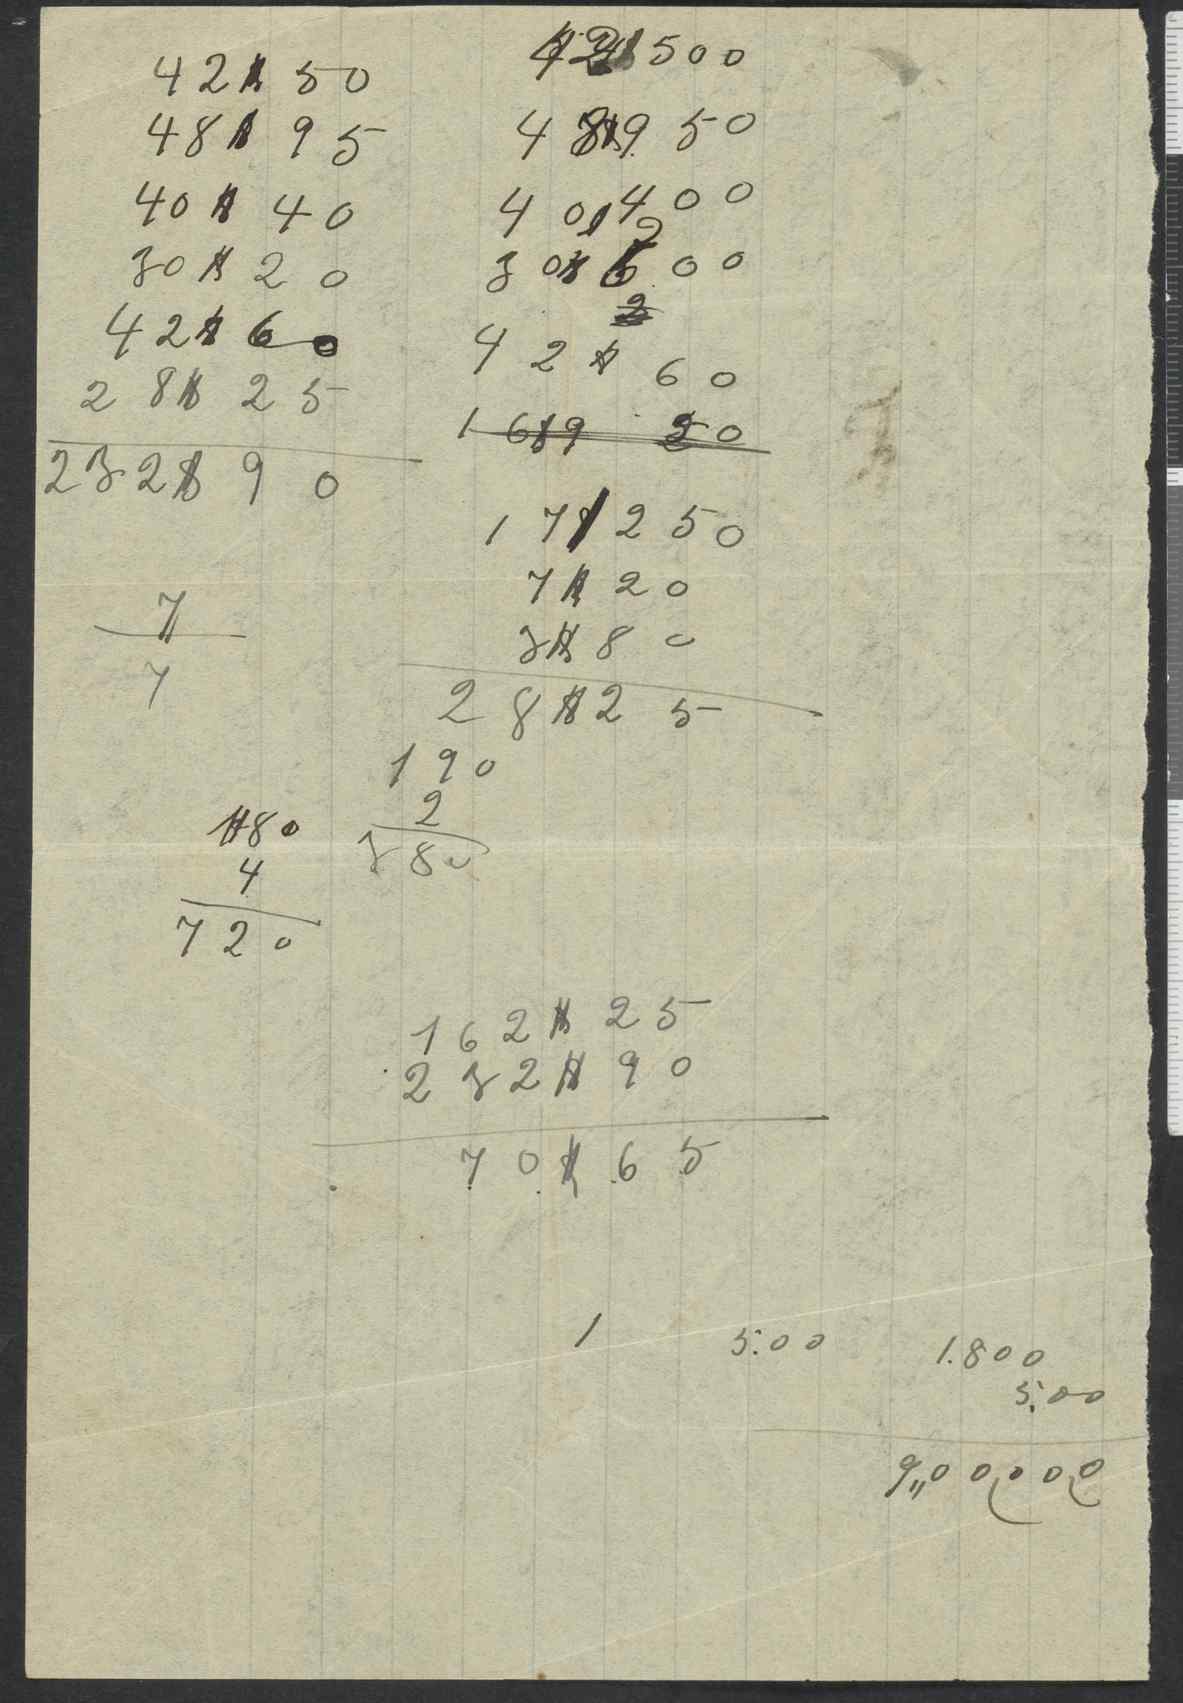 42$50
48$95
40$40
30$20
42$60
28$25
232$90
7
7
42$500
48$950
40$400
30$200
42$60
16$9 20
17$250
7$20
3$80
28$25
190
2
380
1$80
4
720
162$25
232$90
70$65
1 5.00 1.800
5.00
9,,00000